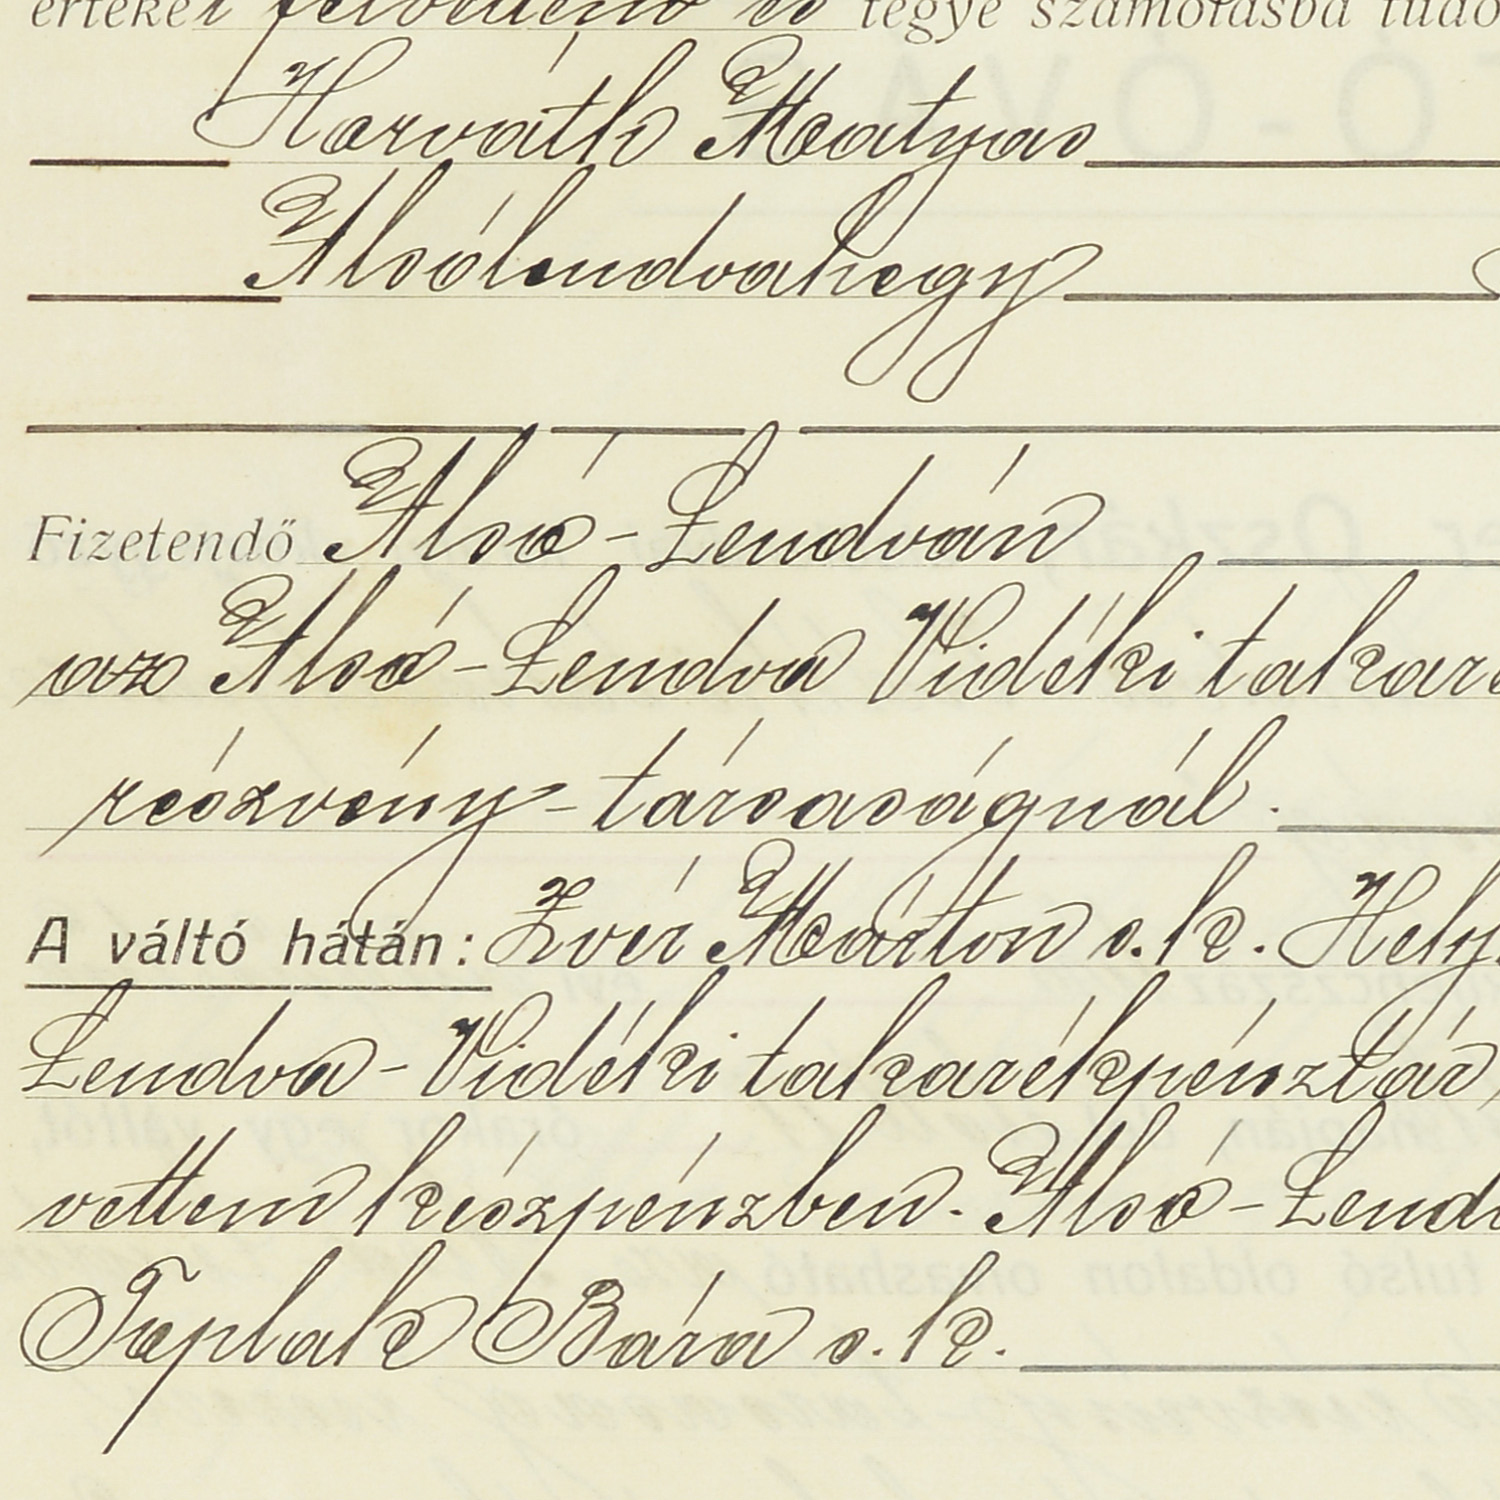 értékét felvettem és tegye számolásba tudó
Horváth Mátyás
Alsólendvahegy
Fizetendő Alsó-Lendván
az Alsó-Lendva Vidéki takaré
részvény-társaságnál.
A váltó hátán: Zver Márton s.k. Hely.
Lendva-Vidéki takarékpénztár
vettem készpénzben. Alsó-Lend
Toplak Bára s.k.